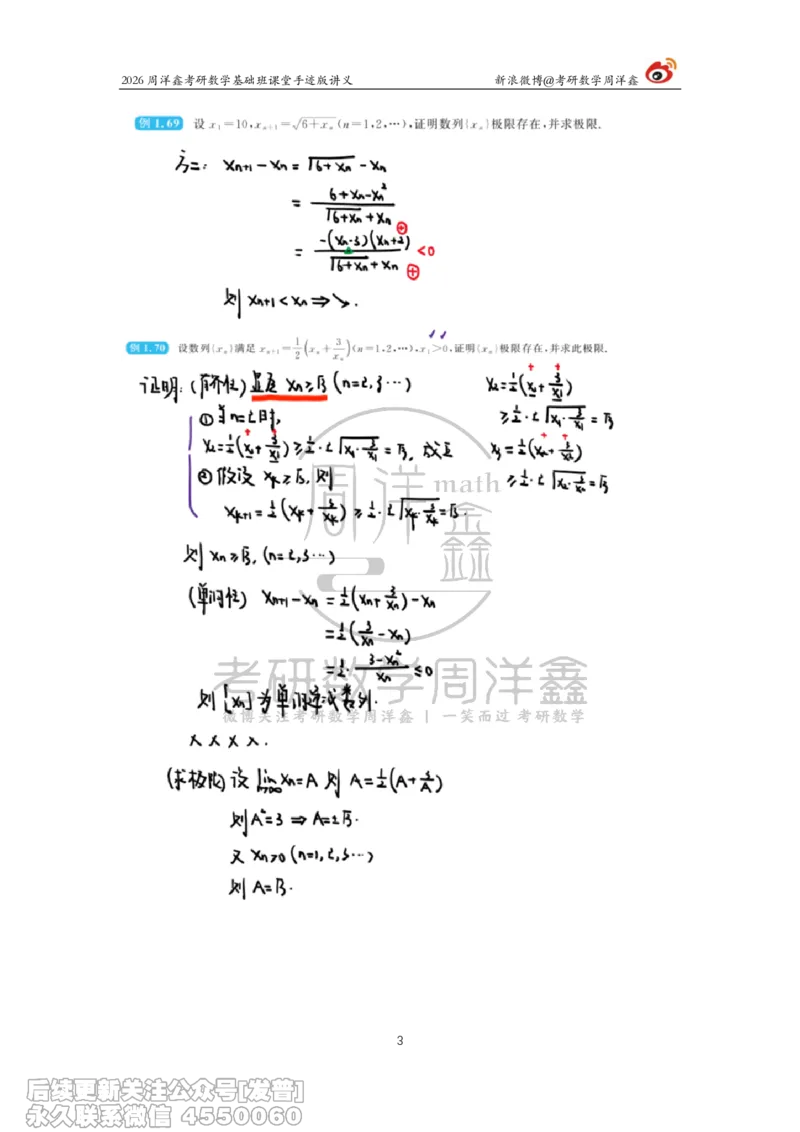 2026 周洋鑫考研数学基础班课堂手迹版讲义 新浪微博@考研数学周洋鑫
例 1.69 设 x₁=10,xₙ₊₁=√(6+xₙ) (n=1,2,…),证明数列{xₙ}极限存在,并求极限.
方二: xₙ₊₁-xₙ = √(6+xₙ) - xₙ
= (6+xₙ-xₙ²)/(√(6+xₙ)+xₙ)
= -(xₙ-3)(xₙ+2)/(√(6+xₙ)+xₙ) <0
⊕
⊕
则 xₙ₊₁<xₙ ⇒ ↘.
例 1.70 设数列{xₙ}满足 xₙ₊₁=1/2(xₙ+3/xₙ)(n=1,2,…),x₁>0,证明{xₙ}极限存在,并求此极限.
证明: (有界性) 显然 xₙ≥√3 (n=2,3…)
① 当n=2时,
x₂=1/2(x₁+3/x₁)≥1/2·2√(x₁·3/x₁)=√3, 成立
② 假设 xₖ≥√3, 则
xₖ₊₁=1/2(xₖ+3/xₖ)≥1/2·2√(xₖ·3/xₖ)=√3.
x₂=1/2(x₁+3/x₁)
≥1/2·2√(x₁·3/x₁)=√3
x₃=1/2(x₂+3/x₂)
≥1/2·2√(x₂·3/x₂)=√3
则 xₙ≥√3, (n=2,3…)
(单调性) xₙ₊₁-xₙ=1/2(xₙ+3/xₙ)-xₙ
=1/2(3/xₙ-xₙ)
=1/2·(3-xₙ²)/xₙ≤0
则{xₙ}为单调递减数列.
(求极限) 设 lim(n→∞) xₙ=A 则 A=1/2(A+3/A)
则A²=3 ⇒ A=±√3.
又 xₙ>0 (n=1,2,3…)
则 A=√3.
周洋鑫 math
考研数学周洋鑫
微博关注考研数学周洋鑫 | 一笑而过 考研数学
3
后续更新关注公众号[发普]
永久联系微信 4550060